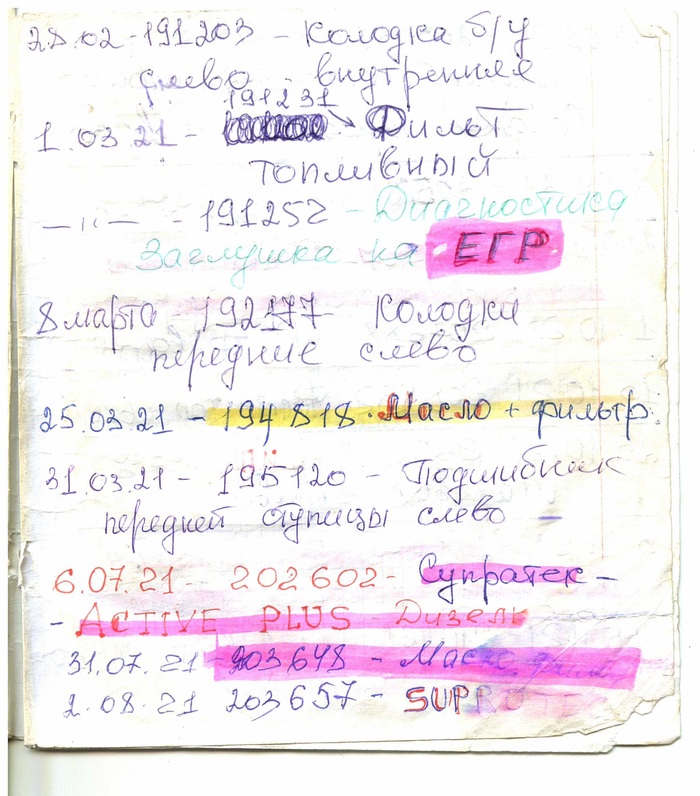 28.02 - 191203 - Колодка б/у
слево - внутренняя
191231
1.03 21 - Фильт
топливный
— " — - 191252 - Диагностика
Заглушка на ЕГР
8 марта - 192177 - Колодки
передние слево
25.03.21 - 194818. Масло + фильтр.
31.03.21 - 195120 - Подшибник
передней ступицы слево -
6.07.21 - 202602 - Супратек -
- ACTIVE PLUS Дизель
31.07.21 - 203648 - Масло
2.08.21 203657 - SUPROTEC